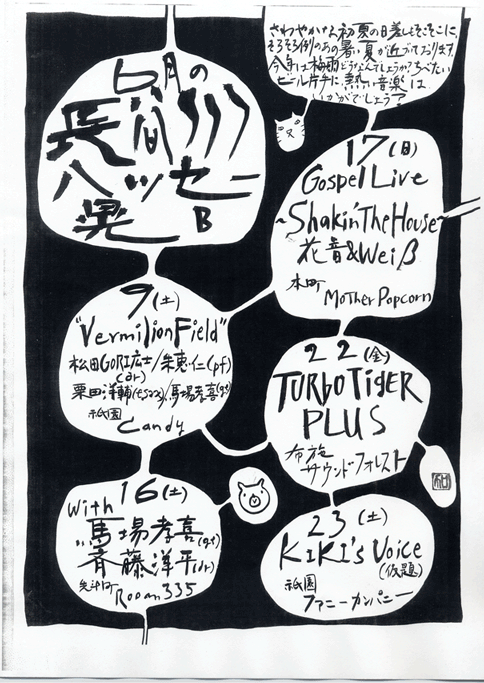 6月の
長谷川
ハッセー
晃
B
さわやかな初夏の日差しもそこそこに、
そろそろ例のあの暑い夏が近づいております。
今年は梅雨どうなんでしょうか?ちべたい
ビール片手に熱い音楽は
いかがでしょう?
9(土)
"Vermilion Field"
松田GORI広士(dr)/朱恵仁(pf)
栗田洋輔/馬場孝喜(gt)
祇園
Candy
16(土)
with
馬場孝喜(gt)
斉藤洋平(dr)
先斗町
Room335
17(日)
Gospel Live
~Shakin' The House~
花音&Weiβ
本町
Mother Popcorn
22(金)
TURBO TIGER
PLUS
布施
サウンド・フォレスト
23(土)
KIKI's Voice
(仮題)
祇園
ファニーカンパニー